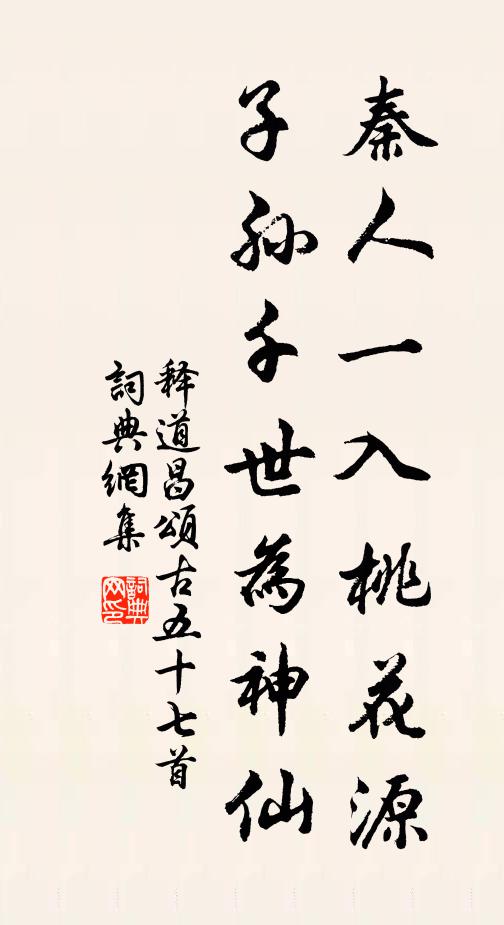 秦人一入桃花源
子孙千世為神仙
释道昌頌古五十七首
詞典網集
詞典网印